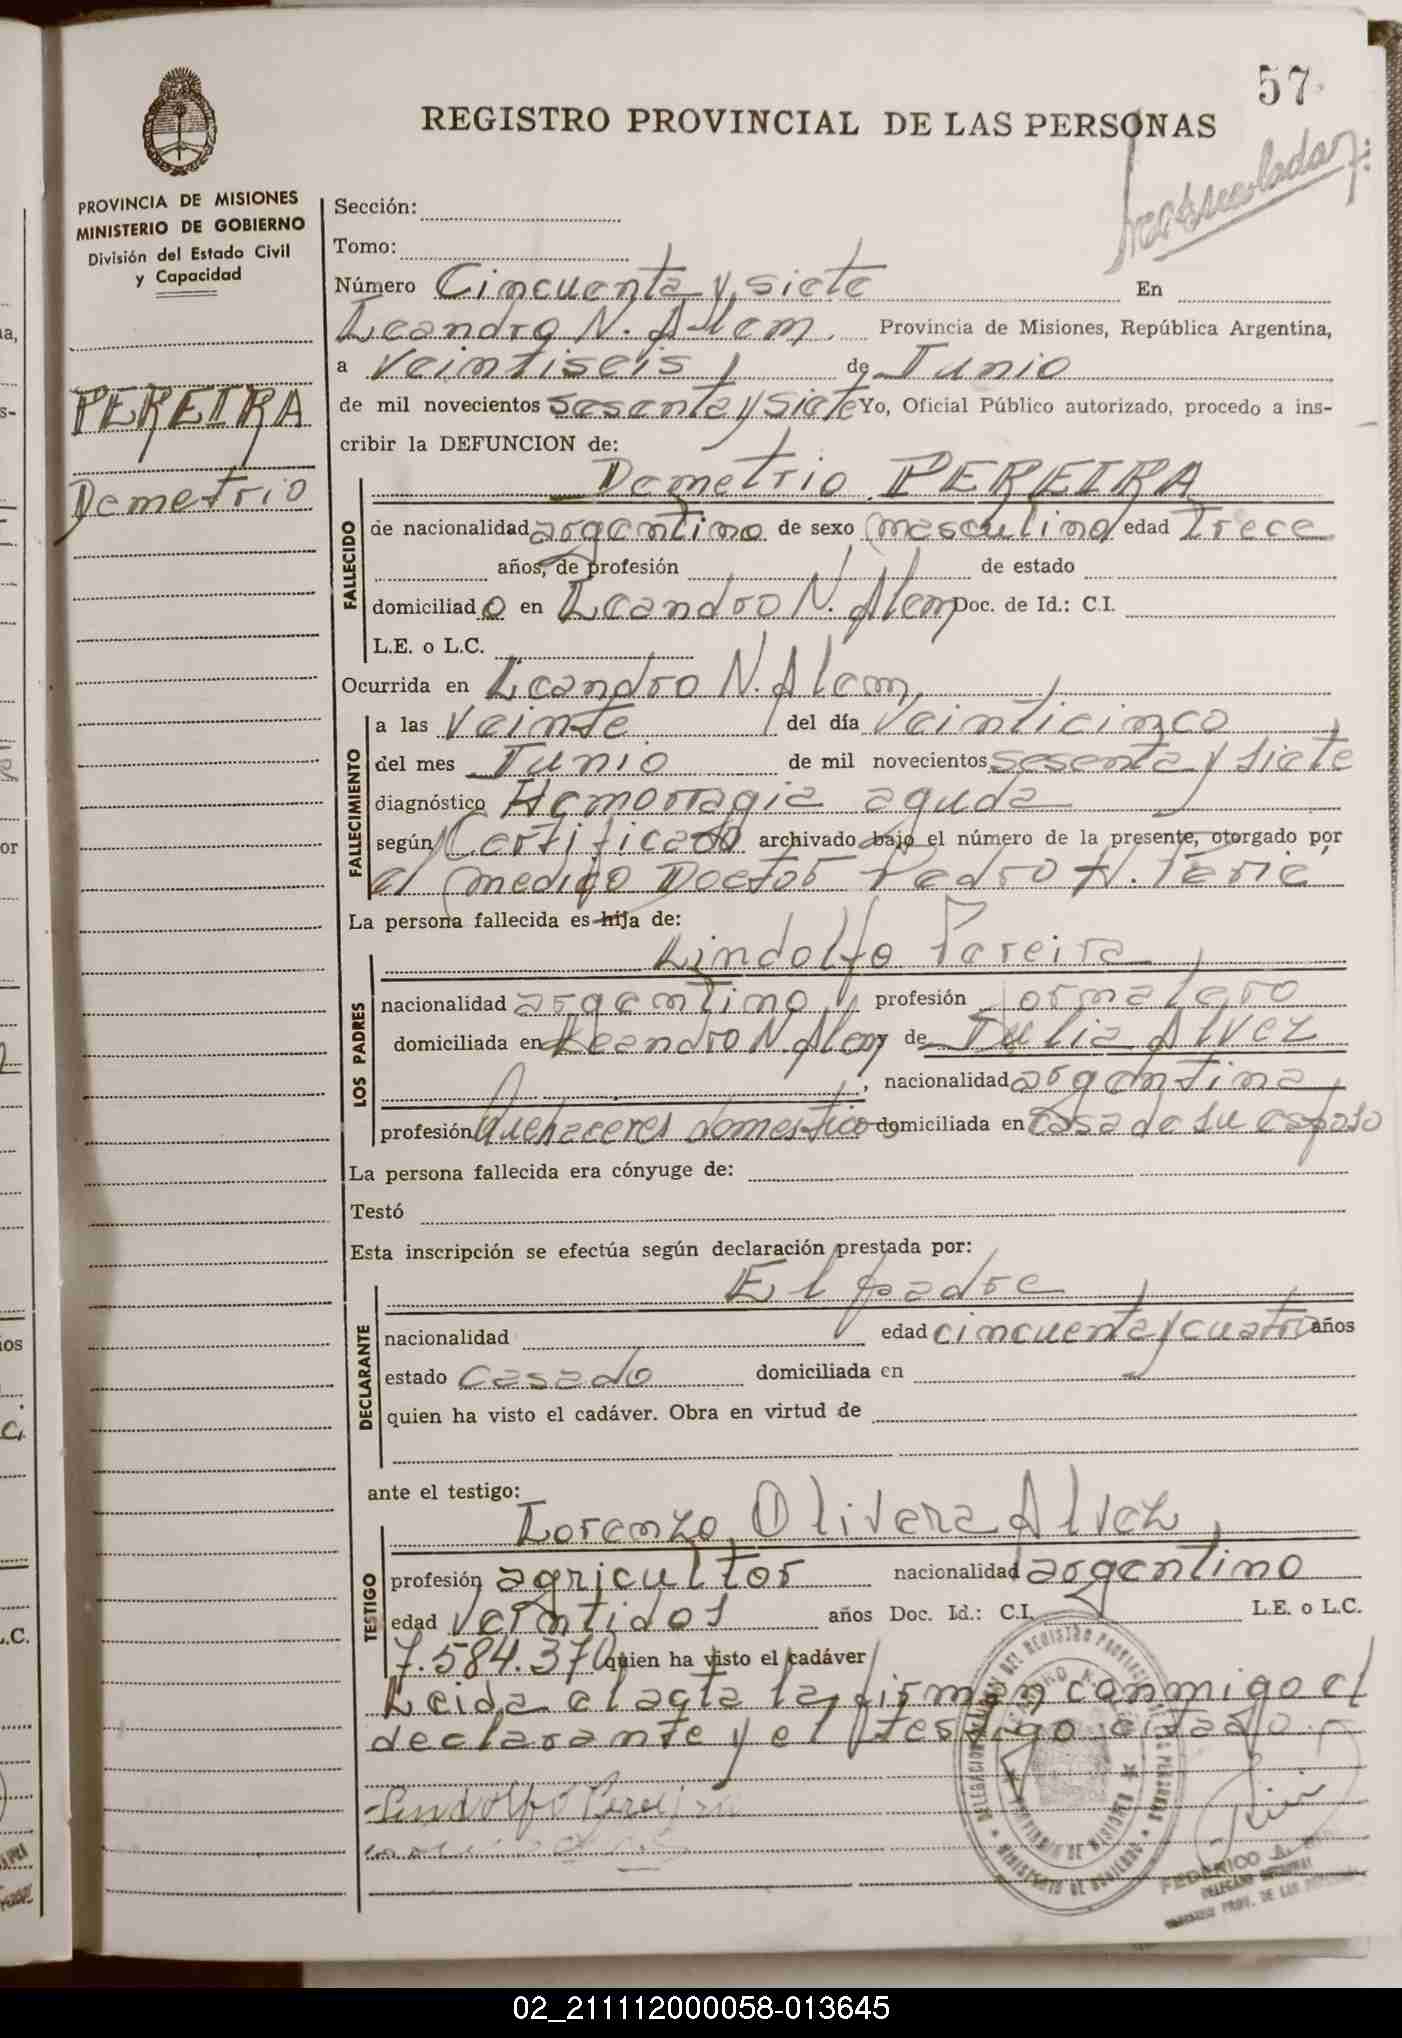 57
REGISTRO PROVINCIAL DE LAS PERSONAS
PROVINCIA DE MISIONES
MINISTERIO DE GOBIERNO
División del Estado Civil
y Capacidad
PEREIRA
Demetrio
Sección:
Tomo:
Número Cincuenta y siete En
Leandro N. Alem, Provincia de Misiones, República Argentina,
a veintiseis de Junio
de mil novecientos sesenta y siete Yo, Oficial Público autorizado, procedo a ins-
cribir la DEFUNCION de:
Demetrio PEREIRA
FALLECIDO
de nacionalidad argentino de sexo masculino edad trece
años, de profesión de estado
domiciliado en Leandro N. Alem Doc. de Id.: C.I.
L.E. o L.C.
Ocurrida en Leandro N. Alem,
FALLECIMIENTO
a las veinte del día veinticinco
del mes Junio de mil novecientos sesenta y siete
diagnóstico Hemorragia aguda
según Certificado archivado bajo el número de la presente, otorgado por
el medico Doctor Pedro H.
La persona fallecida es hija de:
Lindolfo Pereira
LOS PADRES
nacionalidad argentino, profesión Jornalero
domiciliada en Leandro N. Alem y de Julia Alvez
, nacionalidad argentina
profesión Quehaceres domesticos domiciliada en casa de su esposo
La persona fallecida era cónyuge de:
Testó
Esta inscripción se efectúa según declaración prestada por:
El padre
DECLARANTE
nacionalidad edad cincuenta y cuatro años
estado casado domiciliada en
quien ha visto el cadáver. Obra en virtud de
ante el testigo:
Lorenzo Olivera Alvez,
TESTIGO
profesión agricultor nacionalidad argentino
edad veintidos años Doc. Id.: C.I. L.E. o L.C.
7.584.370 quien ha visto el cadáver
Leida el acta la firman conmigo el
declarante y el testigo citado.-
Lindolfo Pereira
FEDERICO A.
02_211112000058-013645